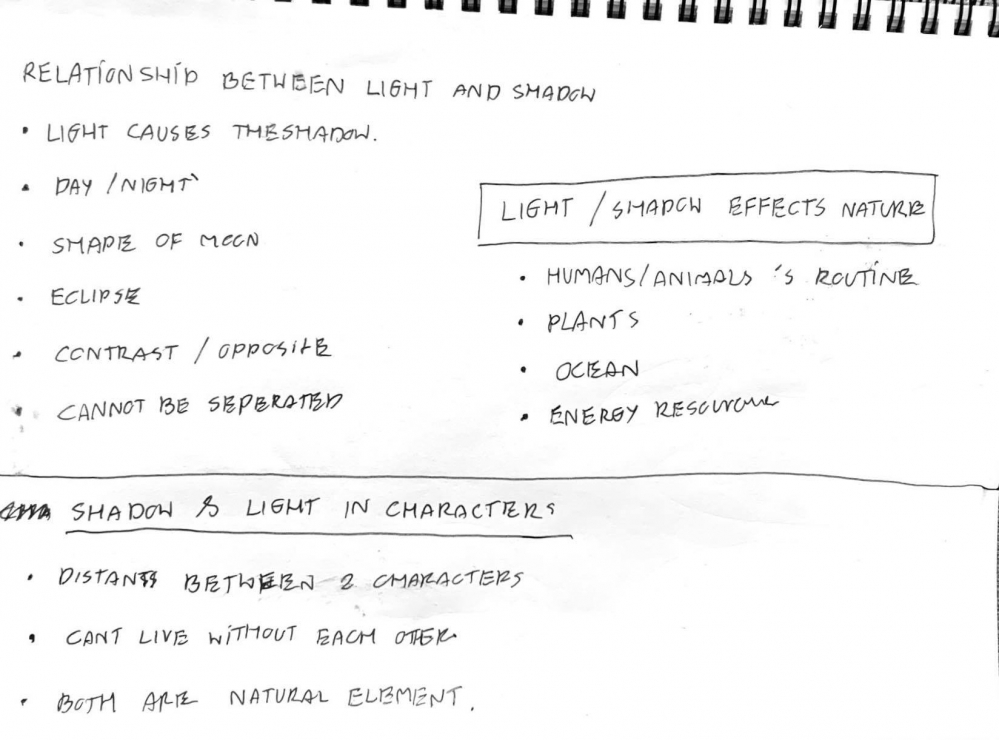 RELATIONSHIP BETWEEN LIGHT AND SHADOW
• LIGHT CAUSES THESHADOW.
• DAY / NIGHT
• SHAPE OF MOON
• ECLIPSE
• CONTRAST / OPPOSITE
• CANNOT BE SEPERATED
LIGHT / SHADOW EFFECTS NATURE
• HUMANS/ANIMALS 'S ROUTINE
• PLANTS
• OCEAN
• ENERGY
SHADOW & LIGHT IN CHARACTERS
• BETWEEN 2 CHARACTERS
• CANT LIVE WITHOUT EACH OTER
• BOTH ARE NATURAL ELEMENT.